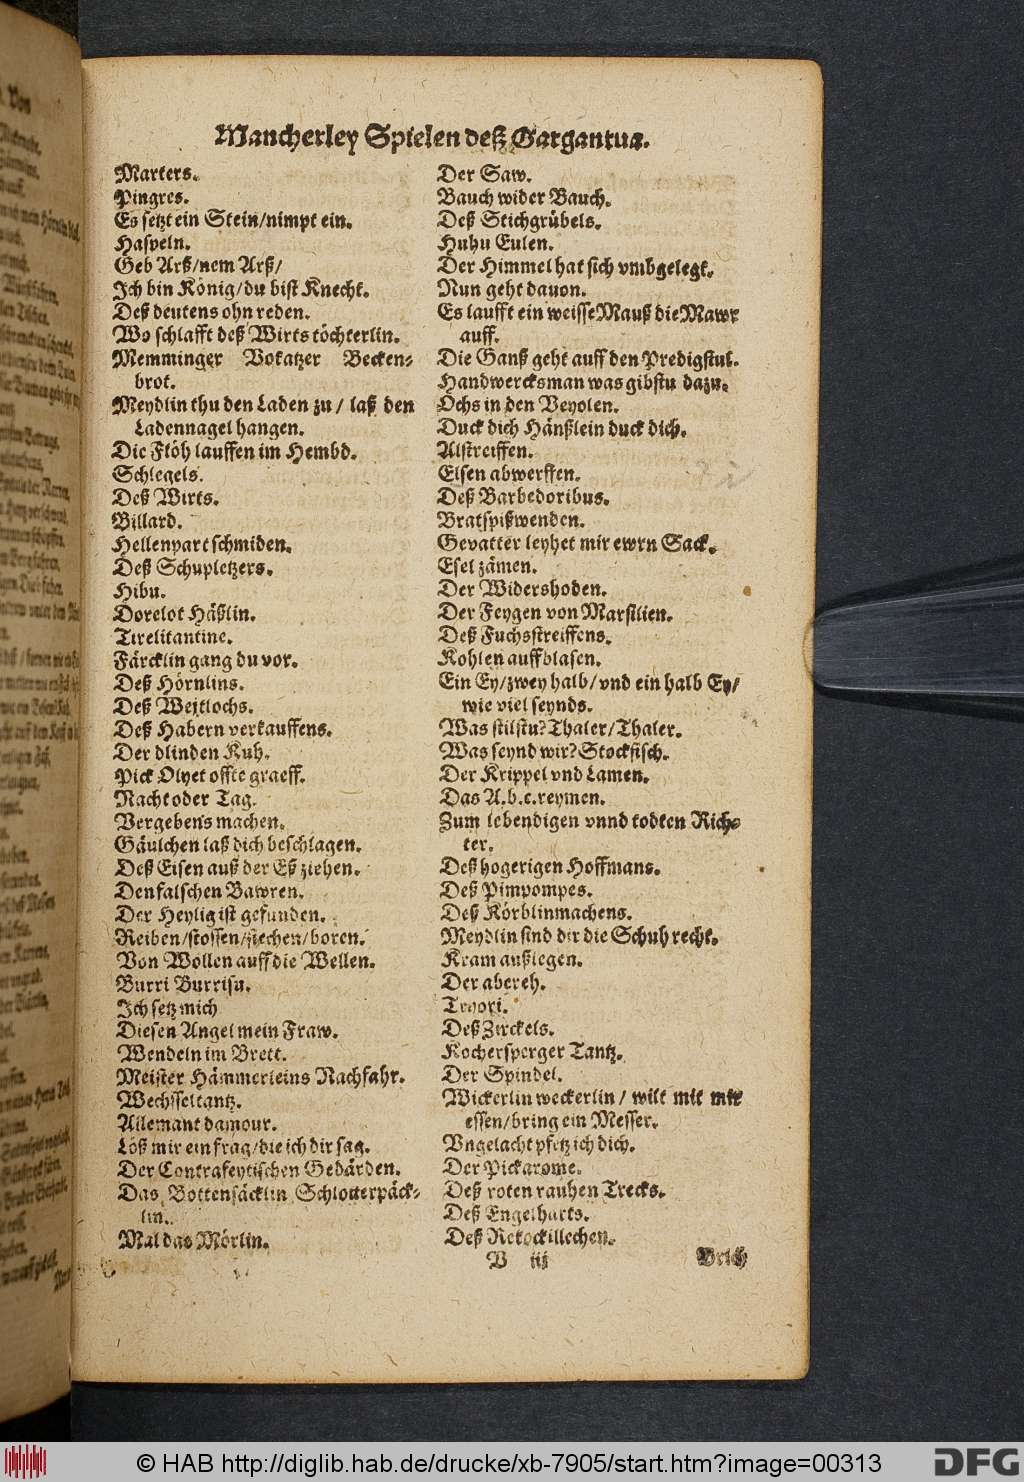 Mancherley Spielen deß Gargantua.
Marters.
Pingres.
Es setzt ein Stein/nimpt ein.
Haspeln.
Geb Arß/nem Arß/
Ich bin König/du bist Knecht.
Deß deutens ohn reden.
Wo schlafft deß Wirts töchterlin.
Memminger Vokatzer Becken-
brot.
Meydlin thu den Laden zu / laß den
Ladennagel hangen.
Die Flöh lauffen im Hembd.
Schlegels.
Deß Wirts.
Billard.
Hellenpart schmiden.
Deß Schupletzers.
Hibu.
Dorelot Häßlin.
Tirelitantine.
Färcklin gang du vor.
Deß Hörnlins.
Deß Weitlochs.
Deß Habern verkauffens.
Der dlinden Kuh.
Pick Olyet offte graeff.
Nacht oder Tag.
Vergebens machen.
Gäulchen laß dich beschlagen.
Deß Eisen auß der Eß ziehen.
Den falschen Bawren.
Der Heylig ist gefunden.
Reiben/stossen/stechen/boren.
Von Wollen auff die Wellen.
Burri Burrisu.
Ich setz mich
Diesen Angel mein Fraw.
Wendeln im Brett.
Meister Hämmerleins Nachfahr.
Wechsseltantz.
Allemant damour.
Löß mir ein frag/die ich dir sag.
Der Contrafeytischen Gebärden.
Das Bottensäcklin Schlotterpäck-
lin.
Mal das Mörlin.
Der Saw.
Bauch wider Bauch.
Deß Stichgrübels.
Huhu Eulen.
Der Himmel hat sich vmbgelegt.
Nun geht dauon.
Es laufft ein weisse Mauß die Mawr
auff.
Die Ganß geht auff den Predigstul.
Handwercksman was gibstu dazu.
Ochs in den Veyolen.
Duck dich Hänßlein duck dich.
Alstreiffen.
Elsen abwerffen.
Deß Barbedoribus.
Bratspißwenden.
Gevatter leyhet mir ewrn Sack.
Esel zämen.
Der Widershoden.
Der Feygen von Marsilien.
Deß Fuchsstreiffens.
Kohlen auffblasen.
Ein Ey/zwey halb/vnd ein halb Ey/
wie viel seynds.
Was stilstu? Thaler/Thaler.
Was seynd wir? Stockfisch.
Der Krippel vnd Lamen.
Das A.b.c.reymen.
Zum lebendigen vnnd todten Rich-
ter.
Deß hogerigen Hoffmans.
Deß Pimpompes.
Deß Körblinmachens.
Meydlin sind dir die Schuh recht.
Kram außlegen.
Der abereh.
Deß Zirckels.
Kochersperger Tantz.
Der Spindel.
Wickerlin weckerlin / wilt mit mir
essen/bring ein Messer.
Vngelacht pfetz ich dich.
Der Pickarome.
Deß roten rauhen Trecks.
Deß Engelharts.
Deß Rekockillechen.
V iij
Brich
© HAB http://diglib.hab.de/drucke/xb-7905/start.htm?image=00313
DFG